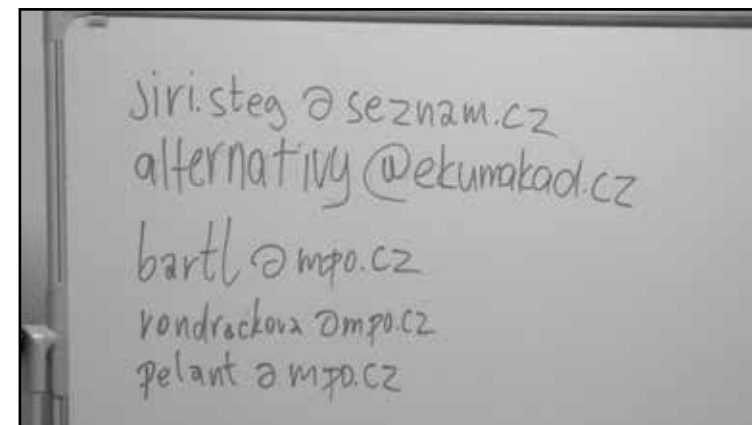 jiri.steg@seznam.cz
alternativy@ekumakad.cz
bartl@mpo.cz
vondrackova@mpo.cz
pelant@mpo.cz